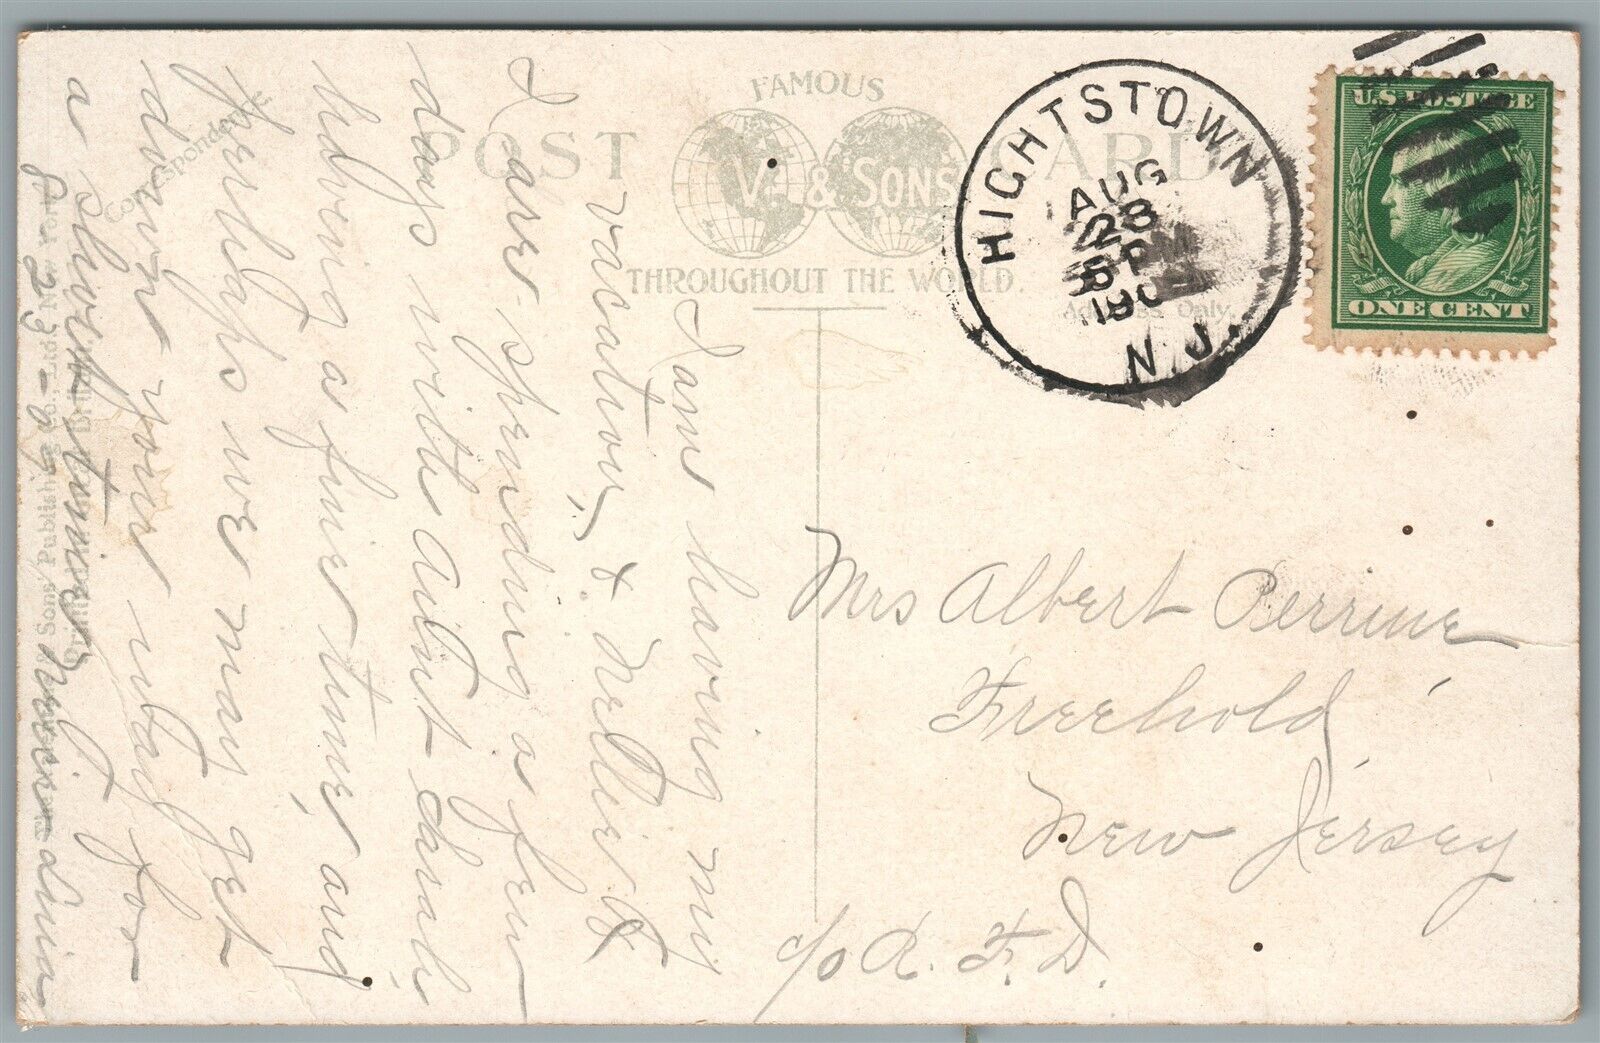 FAMOUS
POST CARD
V. & SONS
THROUGHOUT THE WORLD.
Correspondence
Address Only.
HIGHTSTOWN
AUG
28
5 P
190
N.J.
U.S. POSTAGE
ONE CENT
I am having my
vacation, &
I are spending a few
days with Aunt Sarah
having a fine time, and
perhaps we may get
down your way for
a short time
8-28-09
Mrs Albert Perrine
Freehold
New Jersey
c/o R. F. D.
Sons Publishing Co., Ltd. New York